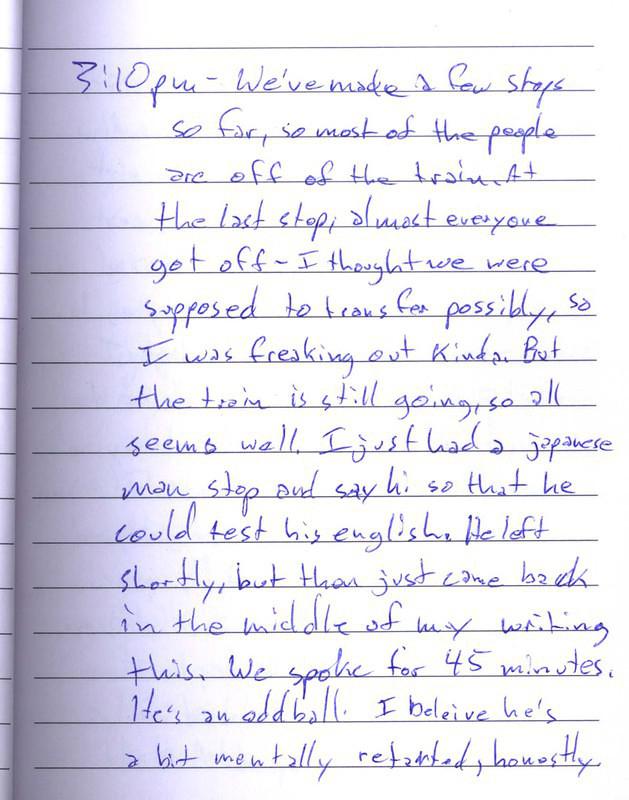 3:10pm - We've made a few stops
so far, so most of the people
are off of the train. At
the last stop, almost everyone
got off - I thought we were
supposed to transfer possibly, so
I was freaking out kinda. But
the train is still going, so all
seems well. I just had a japanese
man stop and say hi so that he
could test his english. He left
shortly, but then just came back
in the middle of my writing
this. We spoke for 45 minutes.
He's an oddball. I beleive he's
a bit mentally retarted, honestly.